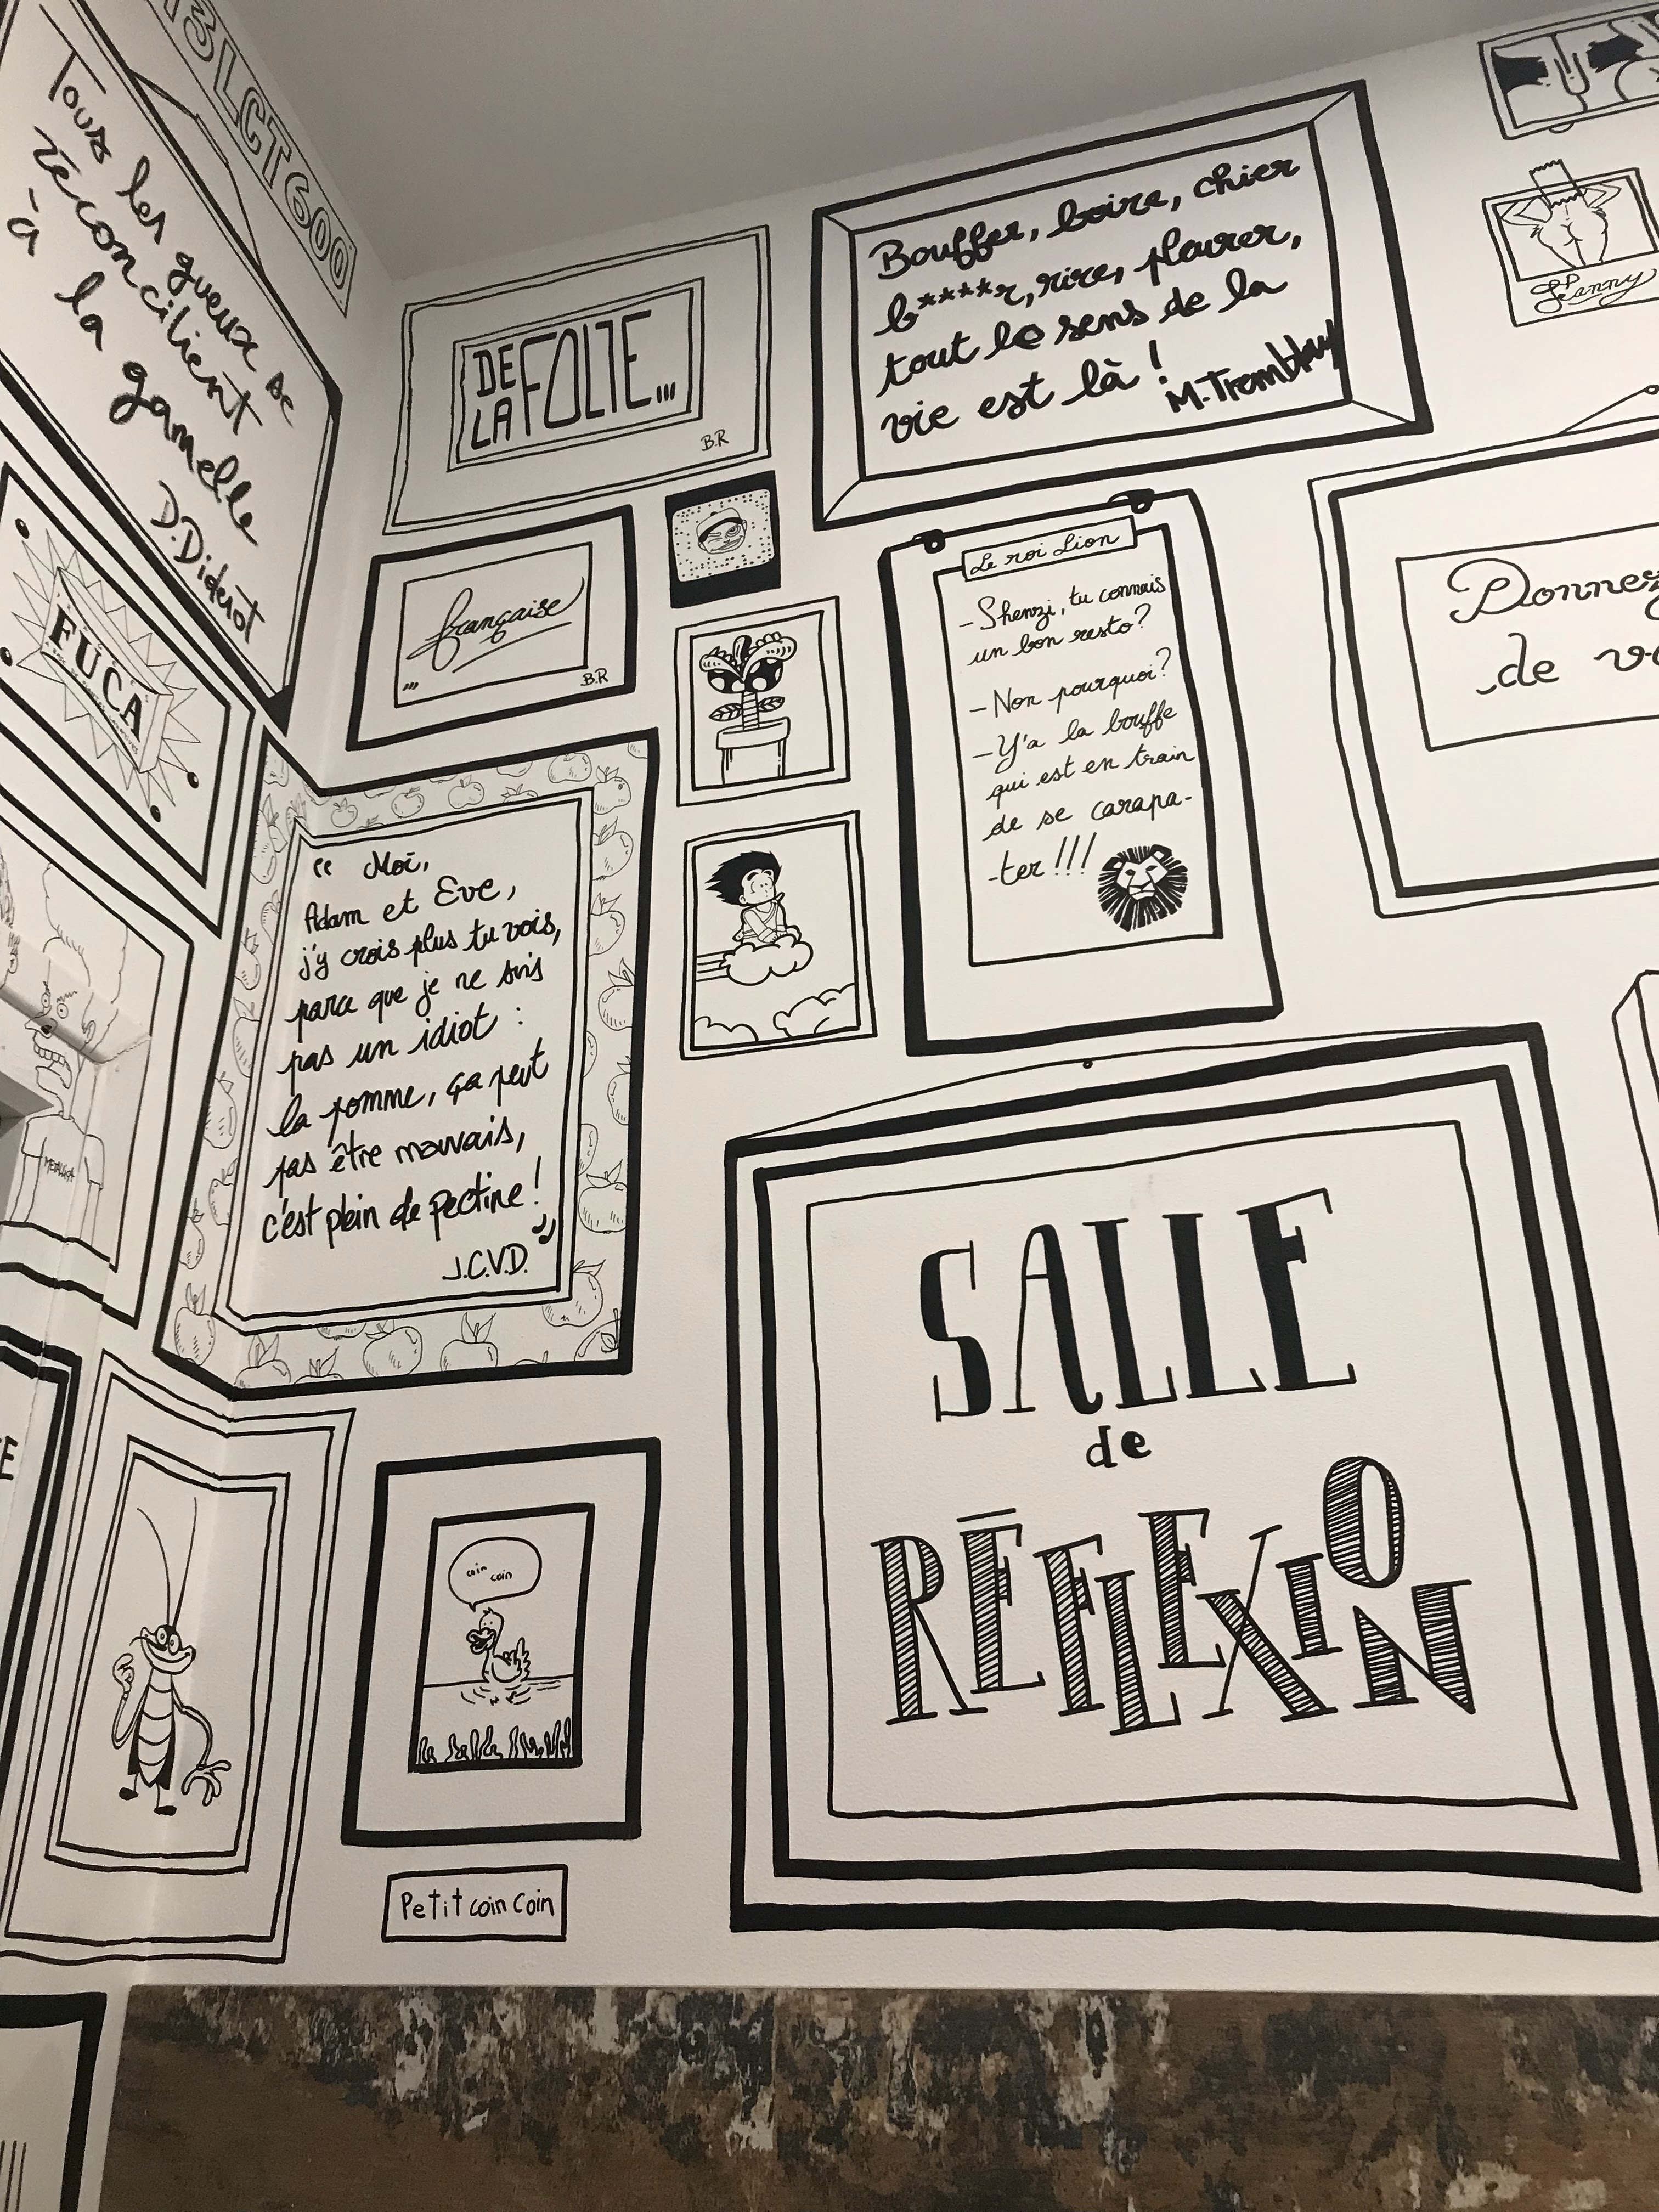 3LCT600
Tous les gueux se
réconcilient
à la gamelle
D.Diderot
FUCA
DE LA FOLIE...
B.R
... française
B.R
Bouffer, boire, chier
b****r, rire, pleurer,
tout le sens de la
vie est là !
M.Tremblay
Jeanny
Le roi Lion
- Shenzi, tu connais
un bon resto?
- Non pourquoi?
- Y'a la bouffe
qui est en train
de se carapa-
-ter !!!
Donnez
de
“ Moi,
Adam et Eve,
j'y crois plus tu vois,
parce que je ne suis
pas un idiot :
la pomme, ça peut
pas être mauvais,
c'est plein de pectine ! ”
J.C.V.D.
coin
coin
Petit coin coin
SALLE
de
RÉFLEXION